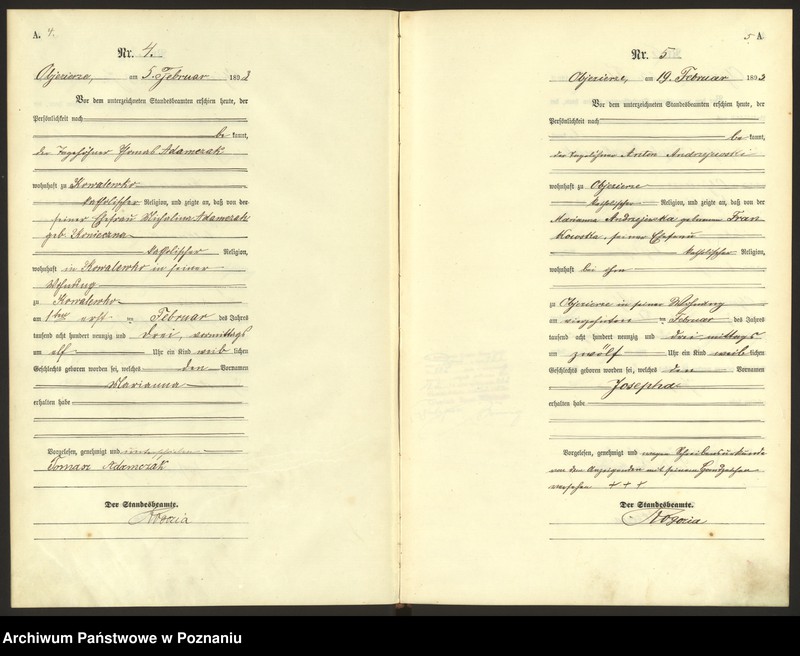 A. 4.
Nr. 4.
Objezierze, am 5. Februar 1893
Vor dem unterzeichneten Standesbeamten erschien heute, der
Persönlichkeit nach
be kannt,
der Tagelöhner Thomas Adamczak
wohnhaft zu Kowalewko
katholischer Religion, und zeigte an, daß von der
seiner Ehefrau Michalina Adamczak
geb. Konieczna
katholischer Religion,
wohnhaft in Kowalewko in seiner
Wohnung
zu Kowalewko
am erst ten Februar des Jahres
tausend acht hundert neunzig und drei, vormittags
um elf Uhr ein Kind weib lichen
Geschlechts geboren worden sei, welches den Vornamen
Marianna
erhalten habe
Vorgelesen, genehmigt und unterschrieben
Tomasz Adamczak
Der Standesbeamte.
5 A
Nr. 5
Objezierze, am 19. Februar 1893
Vor dem unterzeichneten Standesbeamten erschien heute, der
Persönlichkeit nach
be kannt,
der Tagelöhner Anton Andrzejewski
wohnhaft zu Objezierze
katholischer Religion, und zeigte an, daß von der
Marianna Andrzejewska geborenen Fran
kowska, seiner Ehefrau
katholischer Religion,
wohnhaft bei ihm
zu Objezierze in seiner Wohnung
am vierzehnten Februar des Jahres
tausend acht hundert neunzig und drei mittags
um zwölf Uhr ein Kind weib lichen
Geschlechts geboren worden sei, welches den Vornamen
Josepha
erhalten habe
Vorgelesen, genehmigt und wegen Schreibensunkunde
von dem Anzeigenden mit seinem Handzeichen
versehen + + +
Der Standesbeamte.
Archiwum Państwowe w Poznaniu